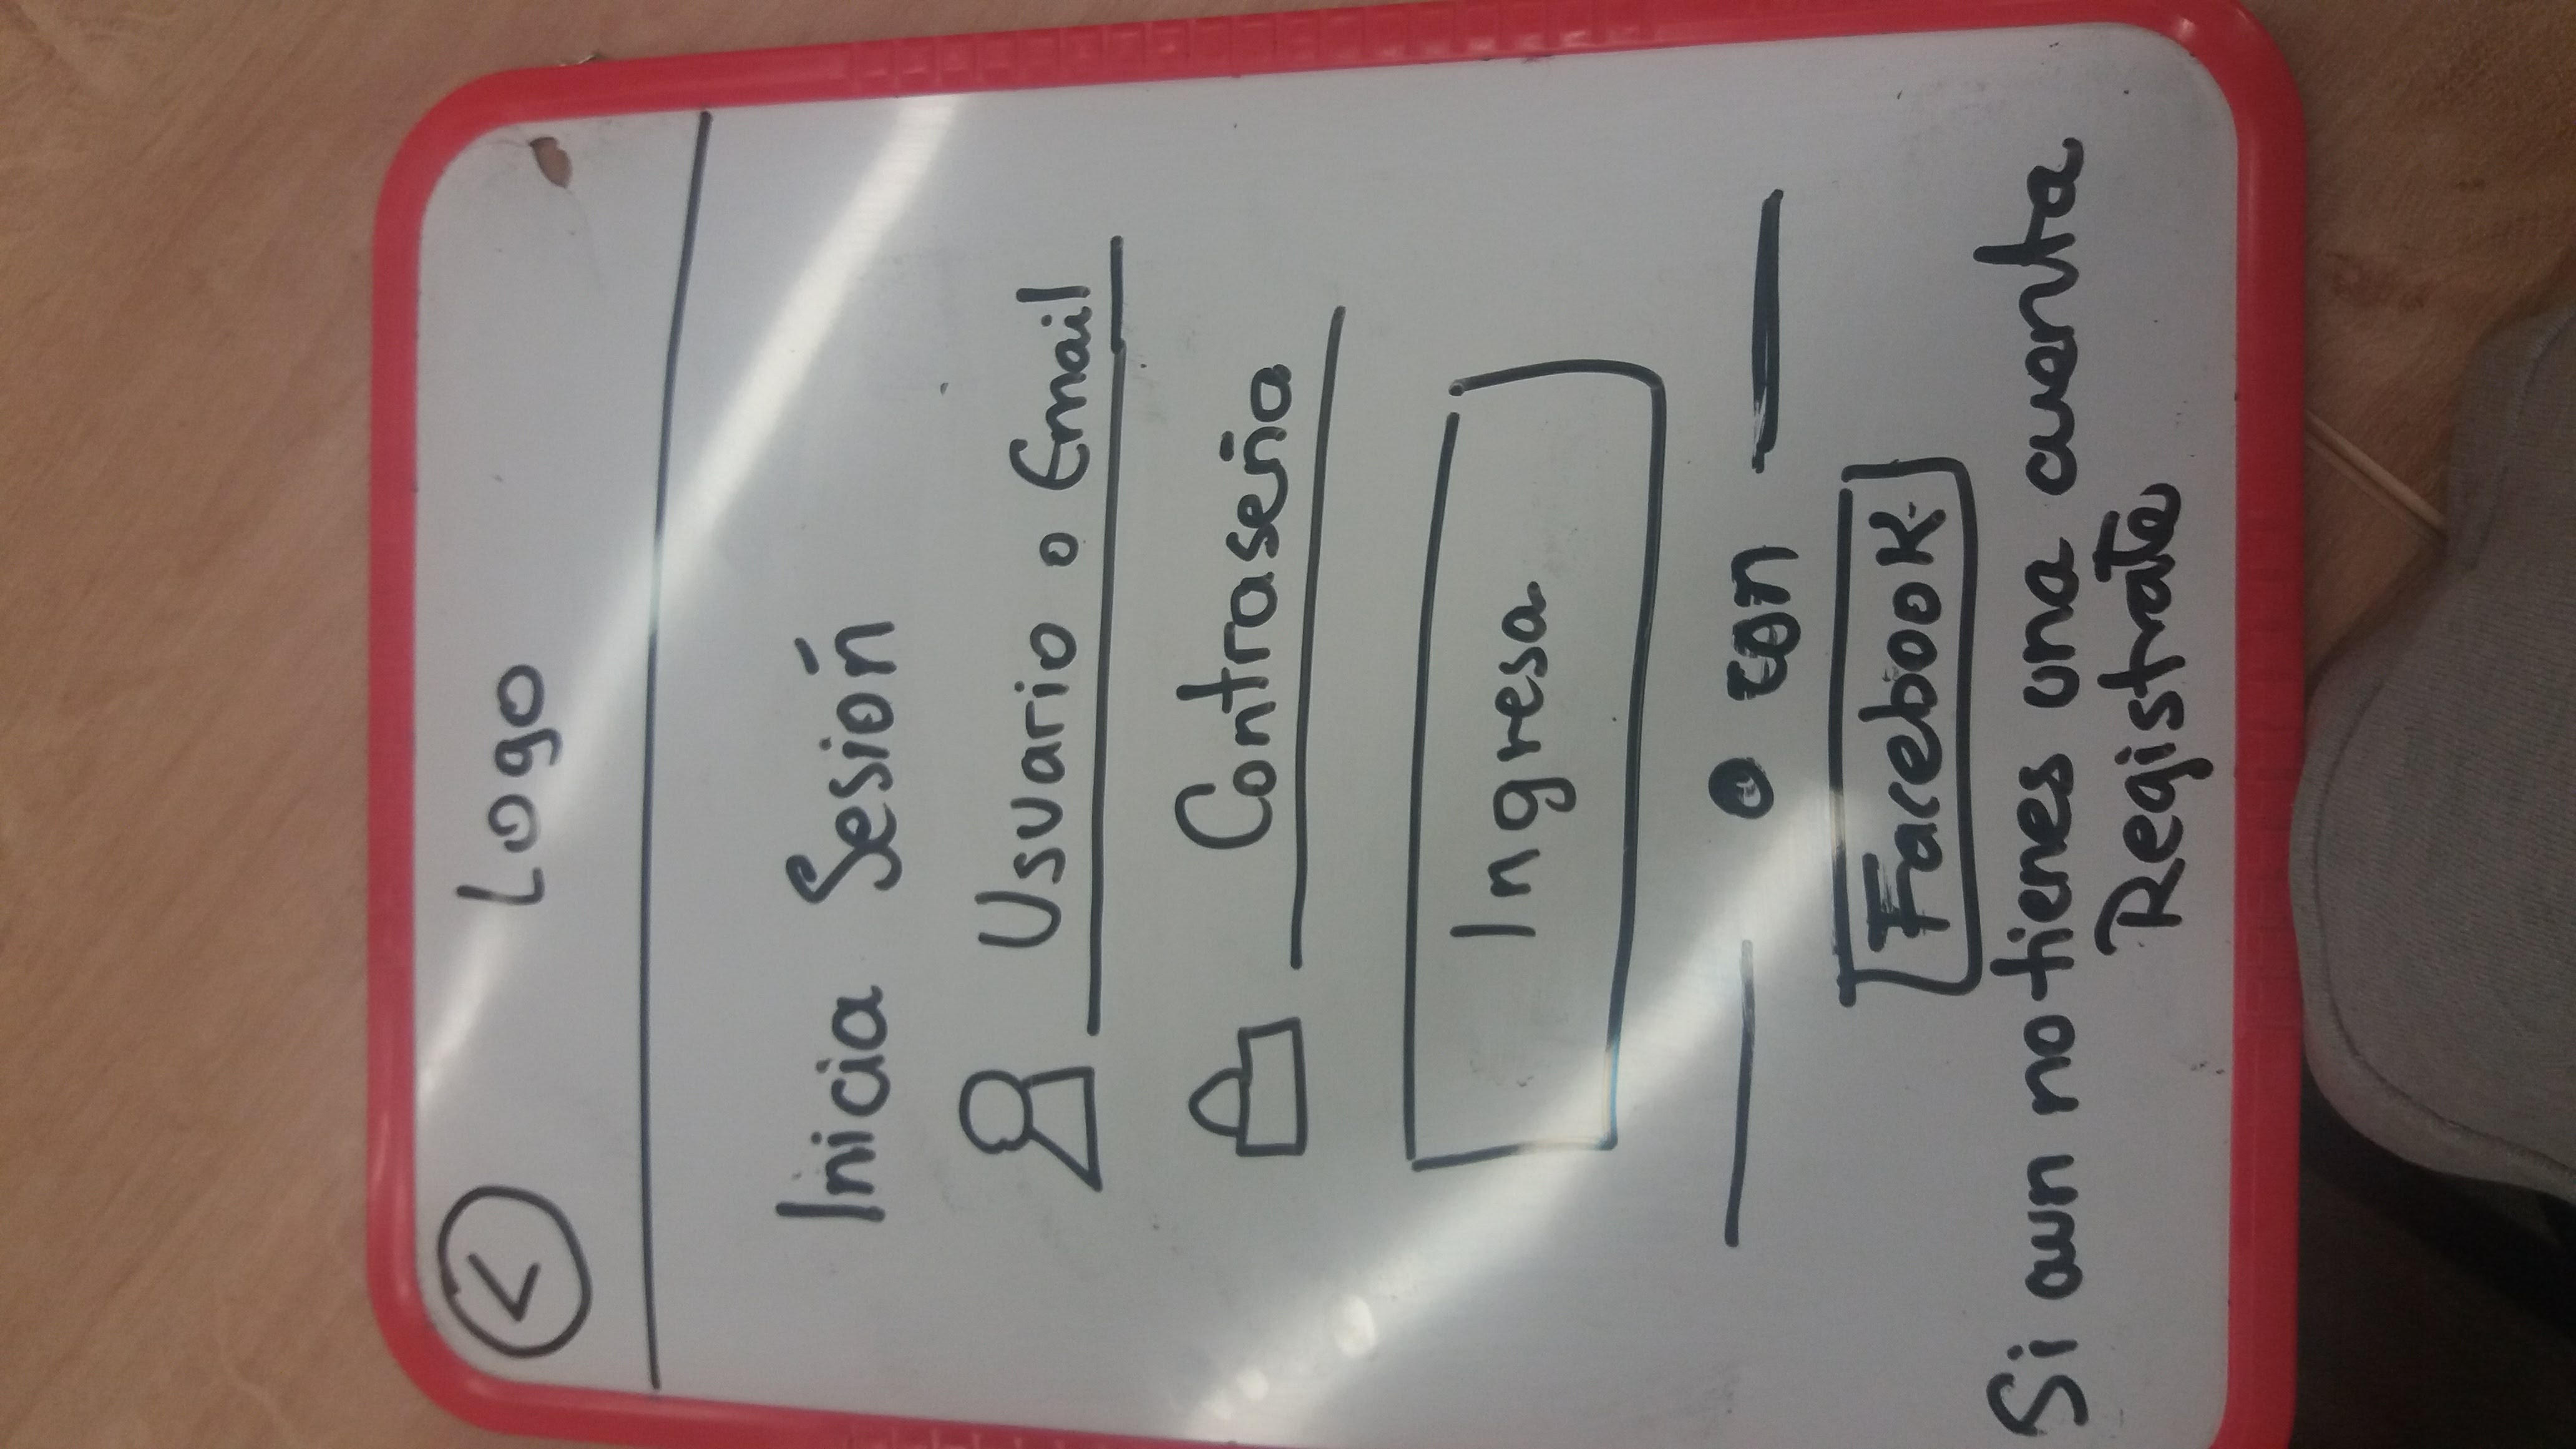 Logo
Inicia Sesión
Usuario o Email
Contraseña
Ingresa
o con
Facebook
Si aun no tienes una cuenta
Registrate